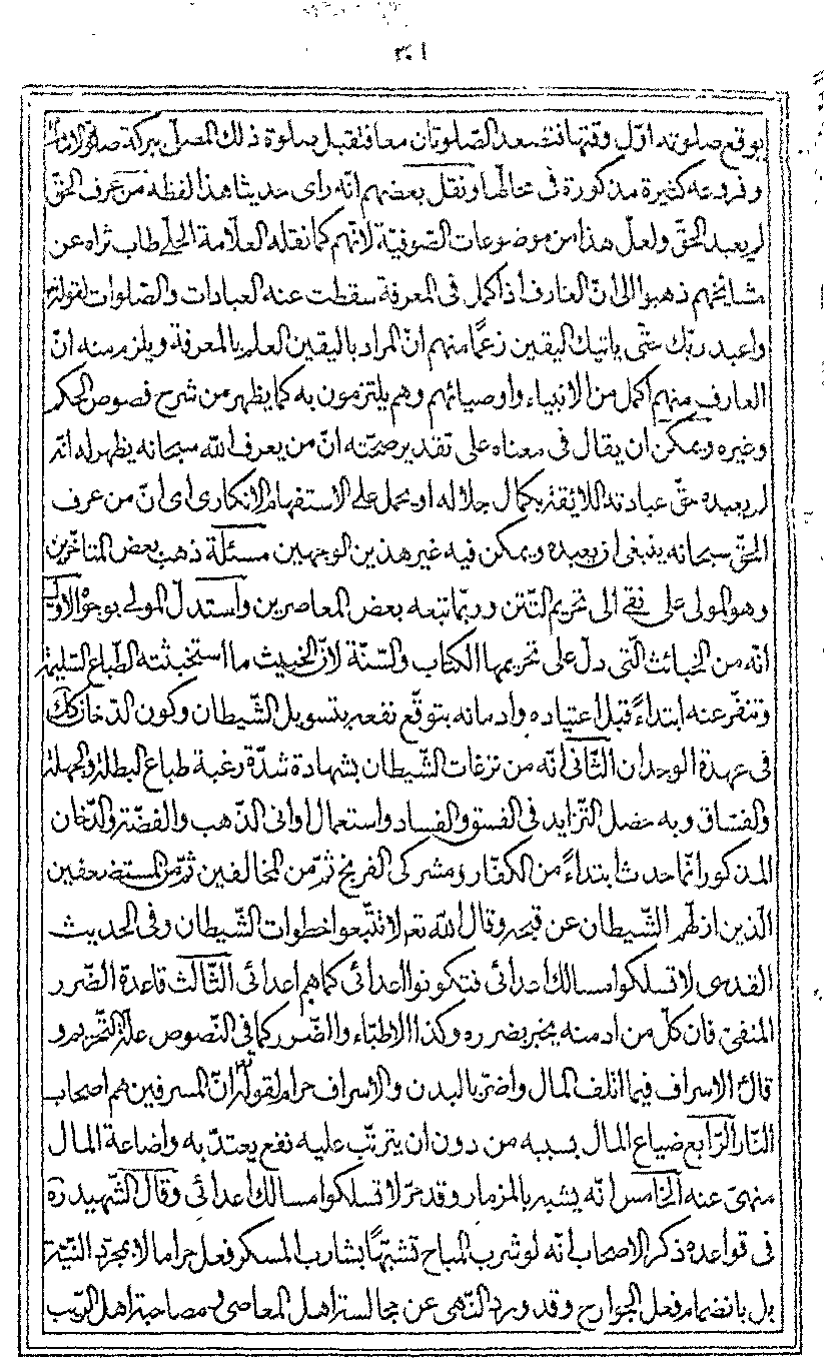 ٣٠١
يوقع صلوته اوّل وقتها فتصعد الصّلوتان معا فتقبل صلوة ذلك المصلّى ببركة صلوة الامام
و فروعه كثيرة مذكورة فى محالّها و نقل بعضهم انّه راى حديثا هذا لفظه من عرف الحقّ
لم يعبد الحقّ ولعلّ هذا من موضوعات الصّوفيّة لانّهم كما نقله العلّامة الحلّى طاب ثراه عن
مشائخهم ذهبوا الى انّ العارف اذا كمل فى المعرفة سقطت عنه العبادات والصّلوات لقوله تع
واعبد ربّك حتّى ياتيك اليقين زعمًا منهم انّ المراد باليقين العلم بالمعرفة ويلزم منه انّ
العارف منهم اكمل من الانبياء واوصيائهم وهم يلتزمون به كما يظهر من شرح فصوص الحكم
وغيره ويمكن ان يقال فى معناه على تقدير صحّته انّ من يعرف الله سبحانه يظهر له انّه
لم يعبده حقّ عبادته اللائقة بكمال جلاله او يحمل على الاستفهام الانكارى اى انّ من عرف
الحقّ سبحانه ينبغى ان يعبده ويمكن فيه غير هذين الوجهين مسئلة ذهب بعض المتاخّرين
وهو المولى على نقى الى تحريم التّتن وربّما تبعه بعض المعاصرين واستدلّ المولى بوجوه الاوّل
انّه من الخبائث الّتى دلّ على تحريمها الكتاب والسّنّة لانّ الخبيث ما استخبثته الطّباع السّليمة
وتنفّر عنه ابتداءً قبل اعتياده وادمانه بتوقّع نفعه بتسويل الشّيطان وكون الدّخان كك
فى عهدة الوجدان الثّانى انّه من نزغات الشّيطان بشهادة شدّة رغبة طباع البطلة والجهلة
والفسّاق وبه حصل التّزايد فى الفسق والفساد واستعمال اوانى الذّهب والفضّة والدّخان
المذكور انّما حدث ابتداءً من الكفّار ومشركى الفرنج ثمّ من المخالفين ثمّ من المستضعفين
الّذين ازلّهم الشّيطان عن قبحه وقال الله تعم لا تتّبعوا خطوات الشّيطان وفى الحديث
القدسى لا تسلكوا مسالك اعدائى فتكونوا اعدائى كما هم اعدائى الثّالث قاعدة الضّرر
المنفىّ فان كلّ من ادمنه يخبر بضرره وكذا الاطبّاء والضّرر كما فى النّصوص علّة التّحريم و
قال الاسراف فيما اتلف المال واضرّ بالبدن والاسراف حرام لقوله تع انّ المسرفين هم اصحاب
النّار الرّابع ضياع المال بسببه من دون ان يترتّب عليه نفع يعتدّ به واضاعة المال
منهىّ عنه الخامس انّه يشبه بالمزمار وقد مرّ لا تسلكوا مسالك اعدائى وقال الشّهيد ره
فى قواعده ذكر الاصحاب انّه لو شرب المباح تشبّهًا بشارب المسكر فعل حراما لا بمجرّد النّيّة
بل بانضمام فعل الجوارح وقد ورد النّهى عن مجالسة اهل المعاصى ومصاحبة اهل الرّيب